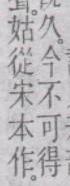 久。今不可得
姑從宋本作。